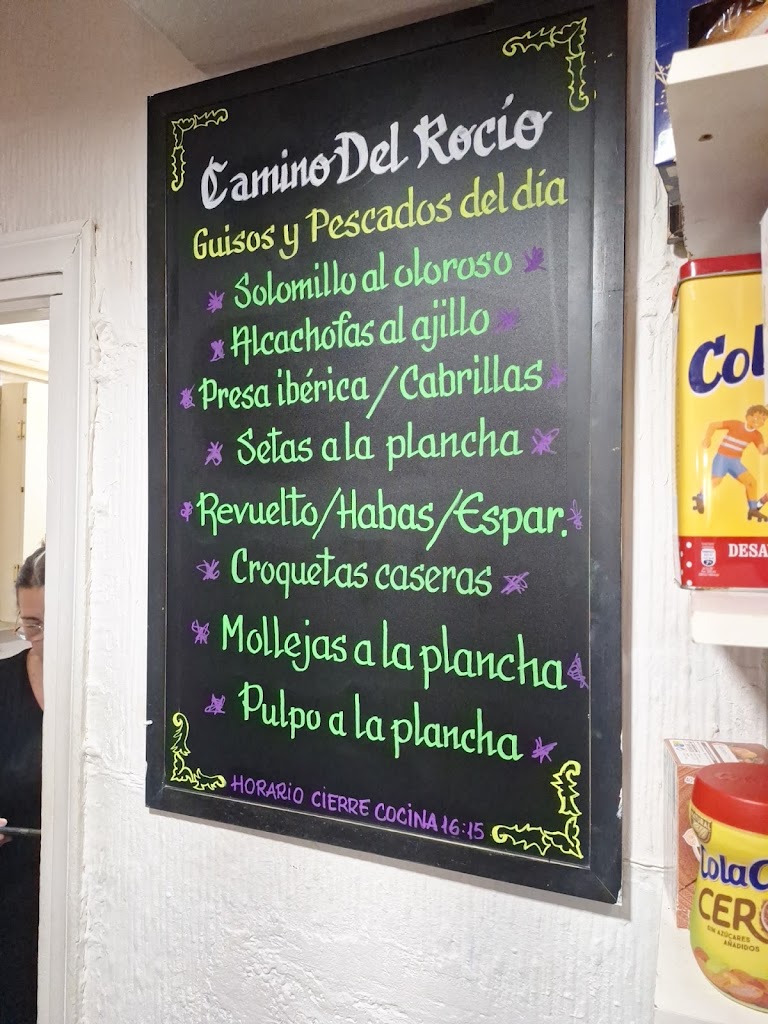 Camino Del Rocío
Guisos y Pescados del día
Solomillo al oloroso
Alcachofas al ajillo
Presa ibérica / Cabrillas
Setas a la plancha
Revuelto/Habas/Espar.
Croquetas caseras
Mollejas a la plancha
Pulpo a la plancha
HORARIO CIERRE COCINA 16:15
Col
DESA
ColaC
CER
SIN AZÚCARES
AÑADIDOS